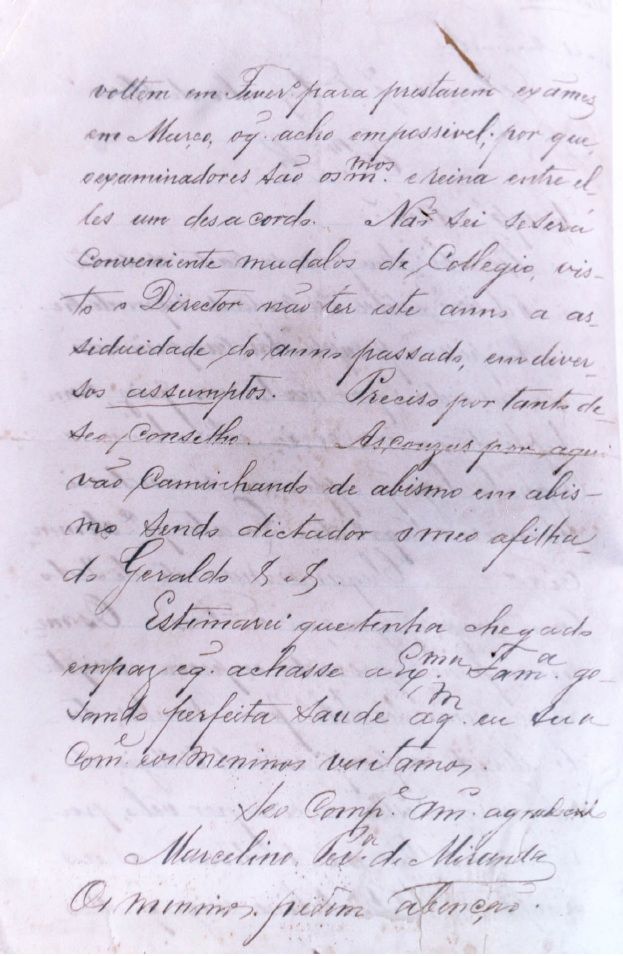 voltem em Fever.º para prestarem exames
em Março, oq̃. acho empossivel; por que,
oexaminadores são os m.mos e reina entre el-
les um desacordo. Não sei se será
Conveniente mudalos de Collegio, vis-
to o Director não ter este anno a as-
siduidade do anno passado, em diver-
sos assumptos. Preciso por tanto de
seo Conselho As couzas por aqui
vão Caminhando de abismo em abis-
mo sendo dictador o meo afilha-
do Geraldo & &.
Estimarei que tenha chegado
empaz eq̃. achasse a Ex.ma Fam.a go-
sando perfeita saude áq.m eu sua
Com.e eos meninos vizitamos.
Seo Comp.e Am.º agradecido
Marcelino Per.ª de Miranda
Os meninos pedem abenção.